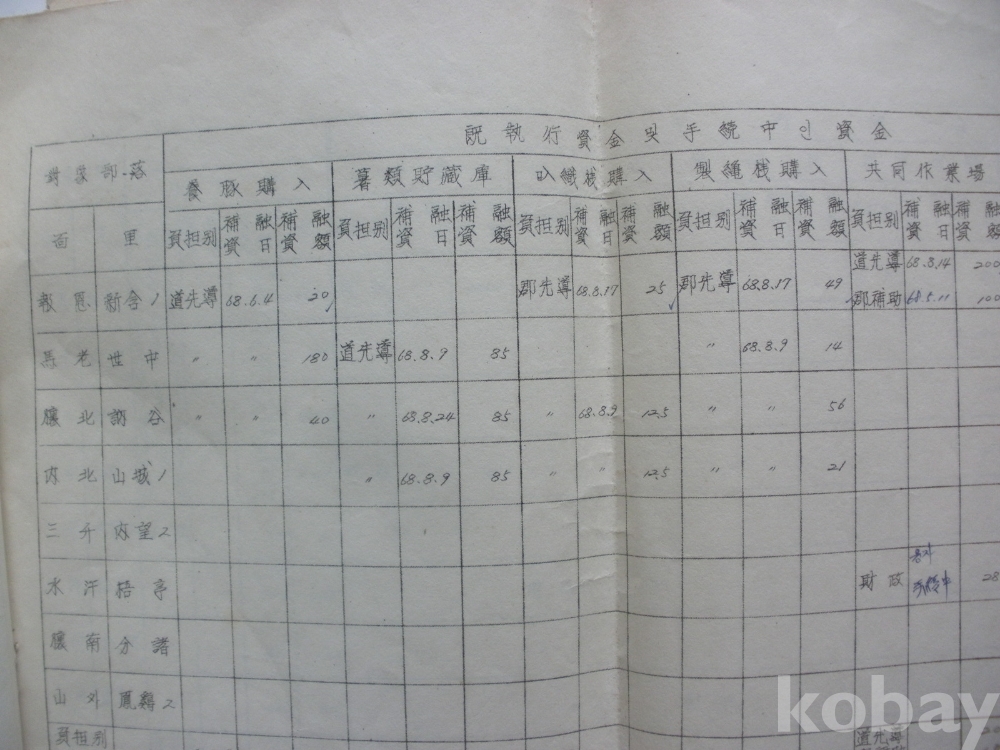 既執行資金및手続中인資金
対象部落 養豚購入 薯類貯蔵庫 叺織桟購入 製縄桟購入 共同作業場
面 里 負担別 補融資日 補融資額 負担別 補融資日 補融資額 負担別 補融資日 補融資額 負担別 補融資日 補融資額 負担別 補融資日 補融資額
道先導 68.8.14 200
報恩 新含1 道先導 68.6.4 20 郡先導 68.8.17 25 郡先導 68.8.17 49 郡補助 68.5.11 100
馬老 世中 〃 〃 180 道先導 68.8.9 85 〃 68.8.9 14
懐北 訥谷 〃 〃 40 〃 68.8.24 85 〃 68.8.9 12.5 〃 〃 56
内北 山城1 〃 68.8.9 85 〃 〃 12.5 〃 〃 21
三升 内望2
水汗 梧亭 財政 28
懐南 分諸
山外 鳳鷄2
負担別 道先導
kobay